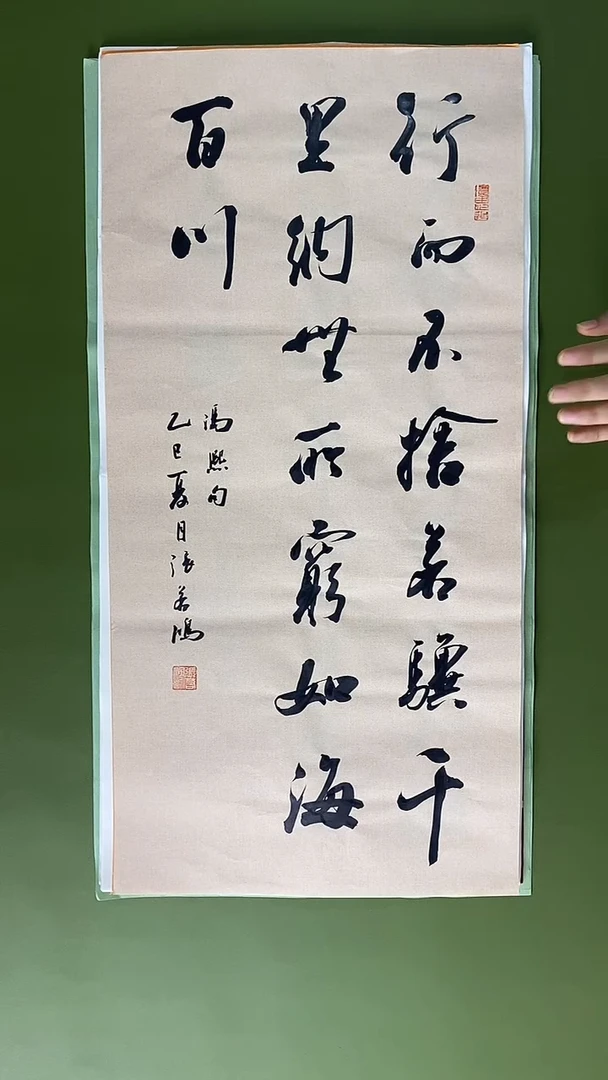 行而不捨若驥千
里納無所窮如海
百川
馮熙句
乙巳夏月張若鴻